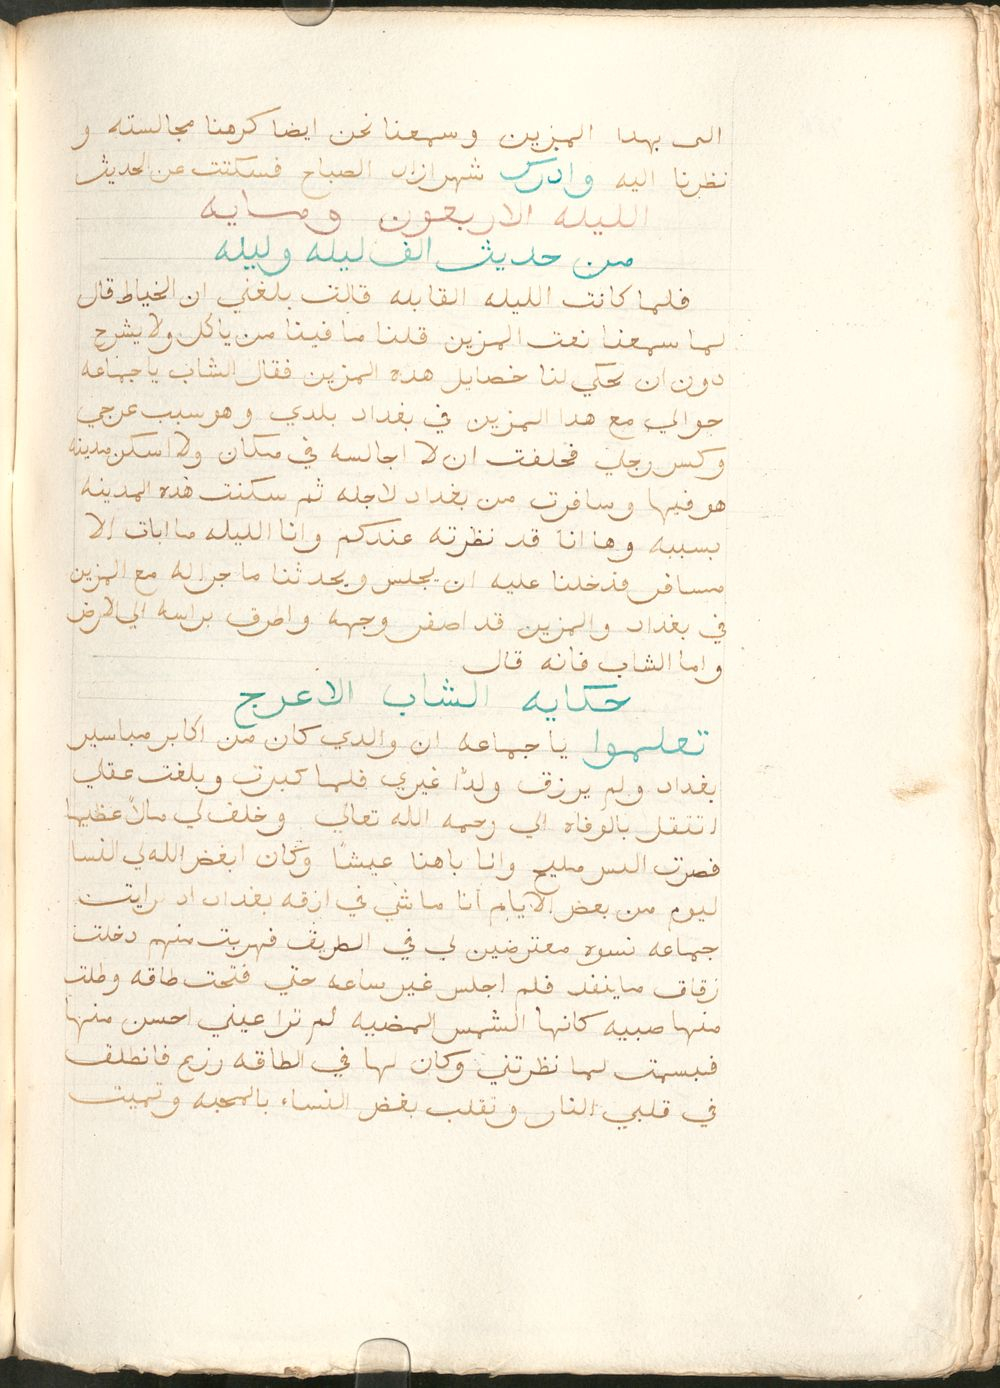 الى بهدا المزين وسمعنا نحن ايضا كرهنا مجالسته و
نظرنا اليه وادرك شهرازاد الصباح فسكتت عن الحديث
الليله الاربعون ومايه
من حديث الف ليله وليله
فلما كانت الليله القابله قالت بلغني ان الخياط قال
لما سمعنا نعت المزين قلنا ما فينا من ياكل ولا يشرح
دون ان يحكي لنا خصايل هده المزين فقال الشاب يا جماعه
جوالي مع هدا المزين في بغداد بلدي وهو سبب عرجي
وكسر رجلي فحلفت ان لا اجالسه في مكان ولا اسكن مدينه
هو فيها وسافرت من بغداد لاجله ثم سكنت هده المدينه
بسببه وها انا قد نظرته عندكم وانا الليله ما ابات الا
مسافر فدخلنا عليه ان يجلس ويحدثنا ما جرا له مع المزين
في بغداد والمزين قد اصفر وجهه واطرق براسه الي الارض
واما الشاب فانه قال
حكايه الشاب الاعرج
تعلموا يا جماعه ان والدي كان من اكابر مياسير
بغداد ولم يرزق ولدًا غيري فلما كبرت وبلغت عقلي
اتنقل بالوفاه الي رحمه الله تعالي وخلف لي مالاً عظيما
فصرت البس مليح وانا باهنا عيشًا وكان ابغض الله لي النسا
ليوم من بعض الايام انا ماشي في ازقه بغداد اد رايت
جماعه نسوه معترضين لي في الطريق فهربت منهم دخلت
زقاق ما ينفد فلم اجلس غير ساعه حتي فتحت طاقه وطلت
منها صبيه كانها الشمس المضيه لم ترا عيني احسن منها
فبسمت لما نظرتني وكان لها في الطاقه رزيع فانطلق
في قلبي النار وتقلب بغض النساء بالمحبه وتميت